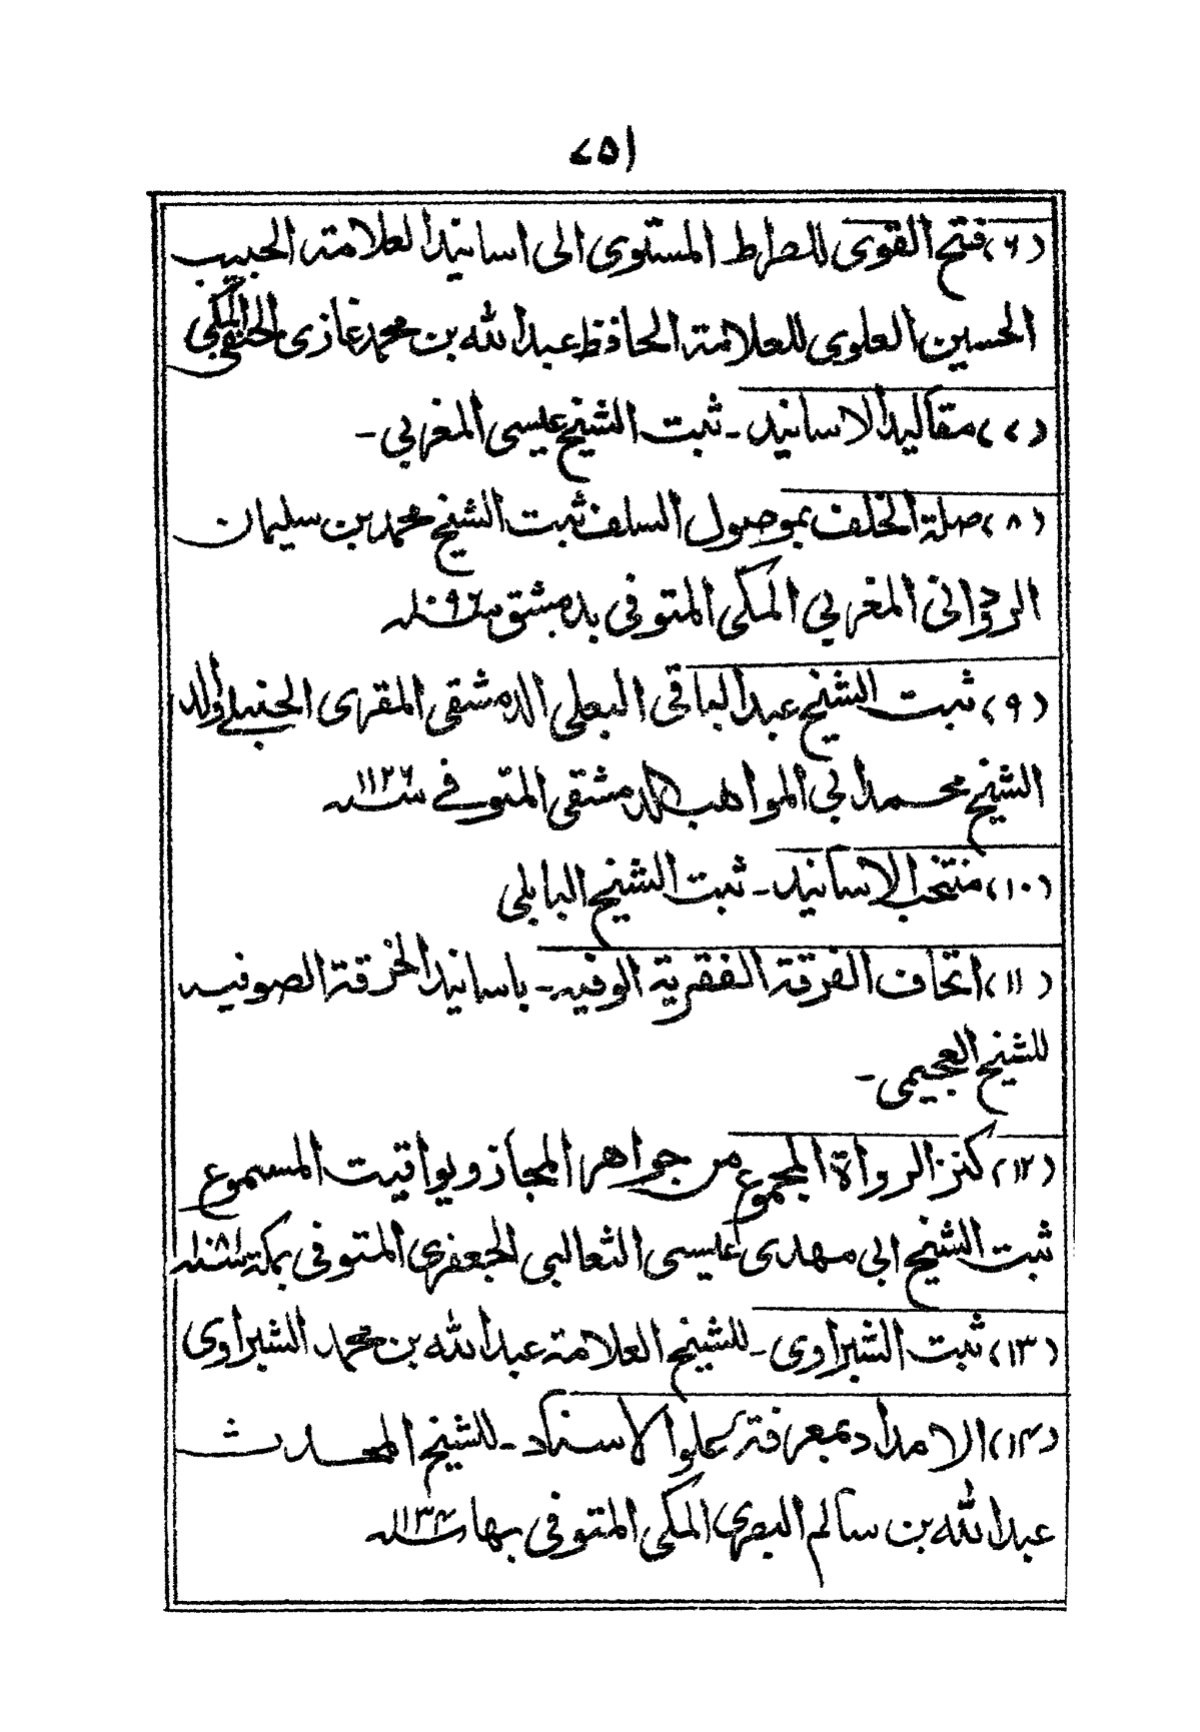 ١٥٧
(٦) فتح القوى للصراط المستوى الى اسانيد العلامة الحبيب
الحسين العلوى للعلامة الحافظ عبد الله بن محمد غازى الحنفى المكي
(٧) مقاليد الاسانيد - ثبت الشيخ عيسى المغربي -
(٨) صلة الخلف بموصول السلف ثبت الشيخ محمد بن سليمان
الردوانى المغربي المكى المتوفى بدمشق
(٩) ثبت الشيخ عبد الباقى البعلى الدمشقى المقرى الحنبلے والد
الشيخ محمد ابي المواهب الدمشقى المتوفے سنه ١١٢٦
(١٠) منتخب الاسانيد - ثبت الشيخ البابلى
(١١) اتحاف الفرقة الفقرية الوفيه - باسانيد الخرقة الصوفيه
للشيخ العجيمى -
(١٢) كنز الرواة المجموع من جواهر المجاز ويواقيت المسموع
ثبت الشيخ ابى مهدى عيسى الثعالبى الجعفرى المتوفى بمكة
(١٣) ثبت الشبراوى - للشيخ العلامة عبد الله بن محمد الشبراوى
(١٤) الامداد بمعرفة علو الاسناد - للشيخ المحدث
عبد الله بن سالم البصرى المكى المتوفى بها سنه ١١٣٤